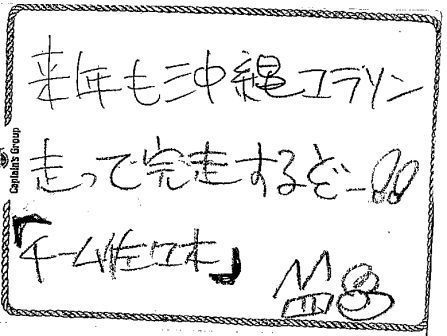 来年も沖縄マラソン
走って完走するぞー!!
「チーム佐々木」
Captain's Group